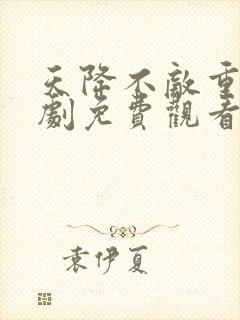 天降不敵重
劇免費觀看
袁伊夏